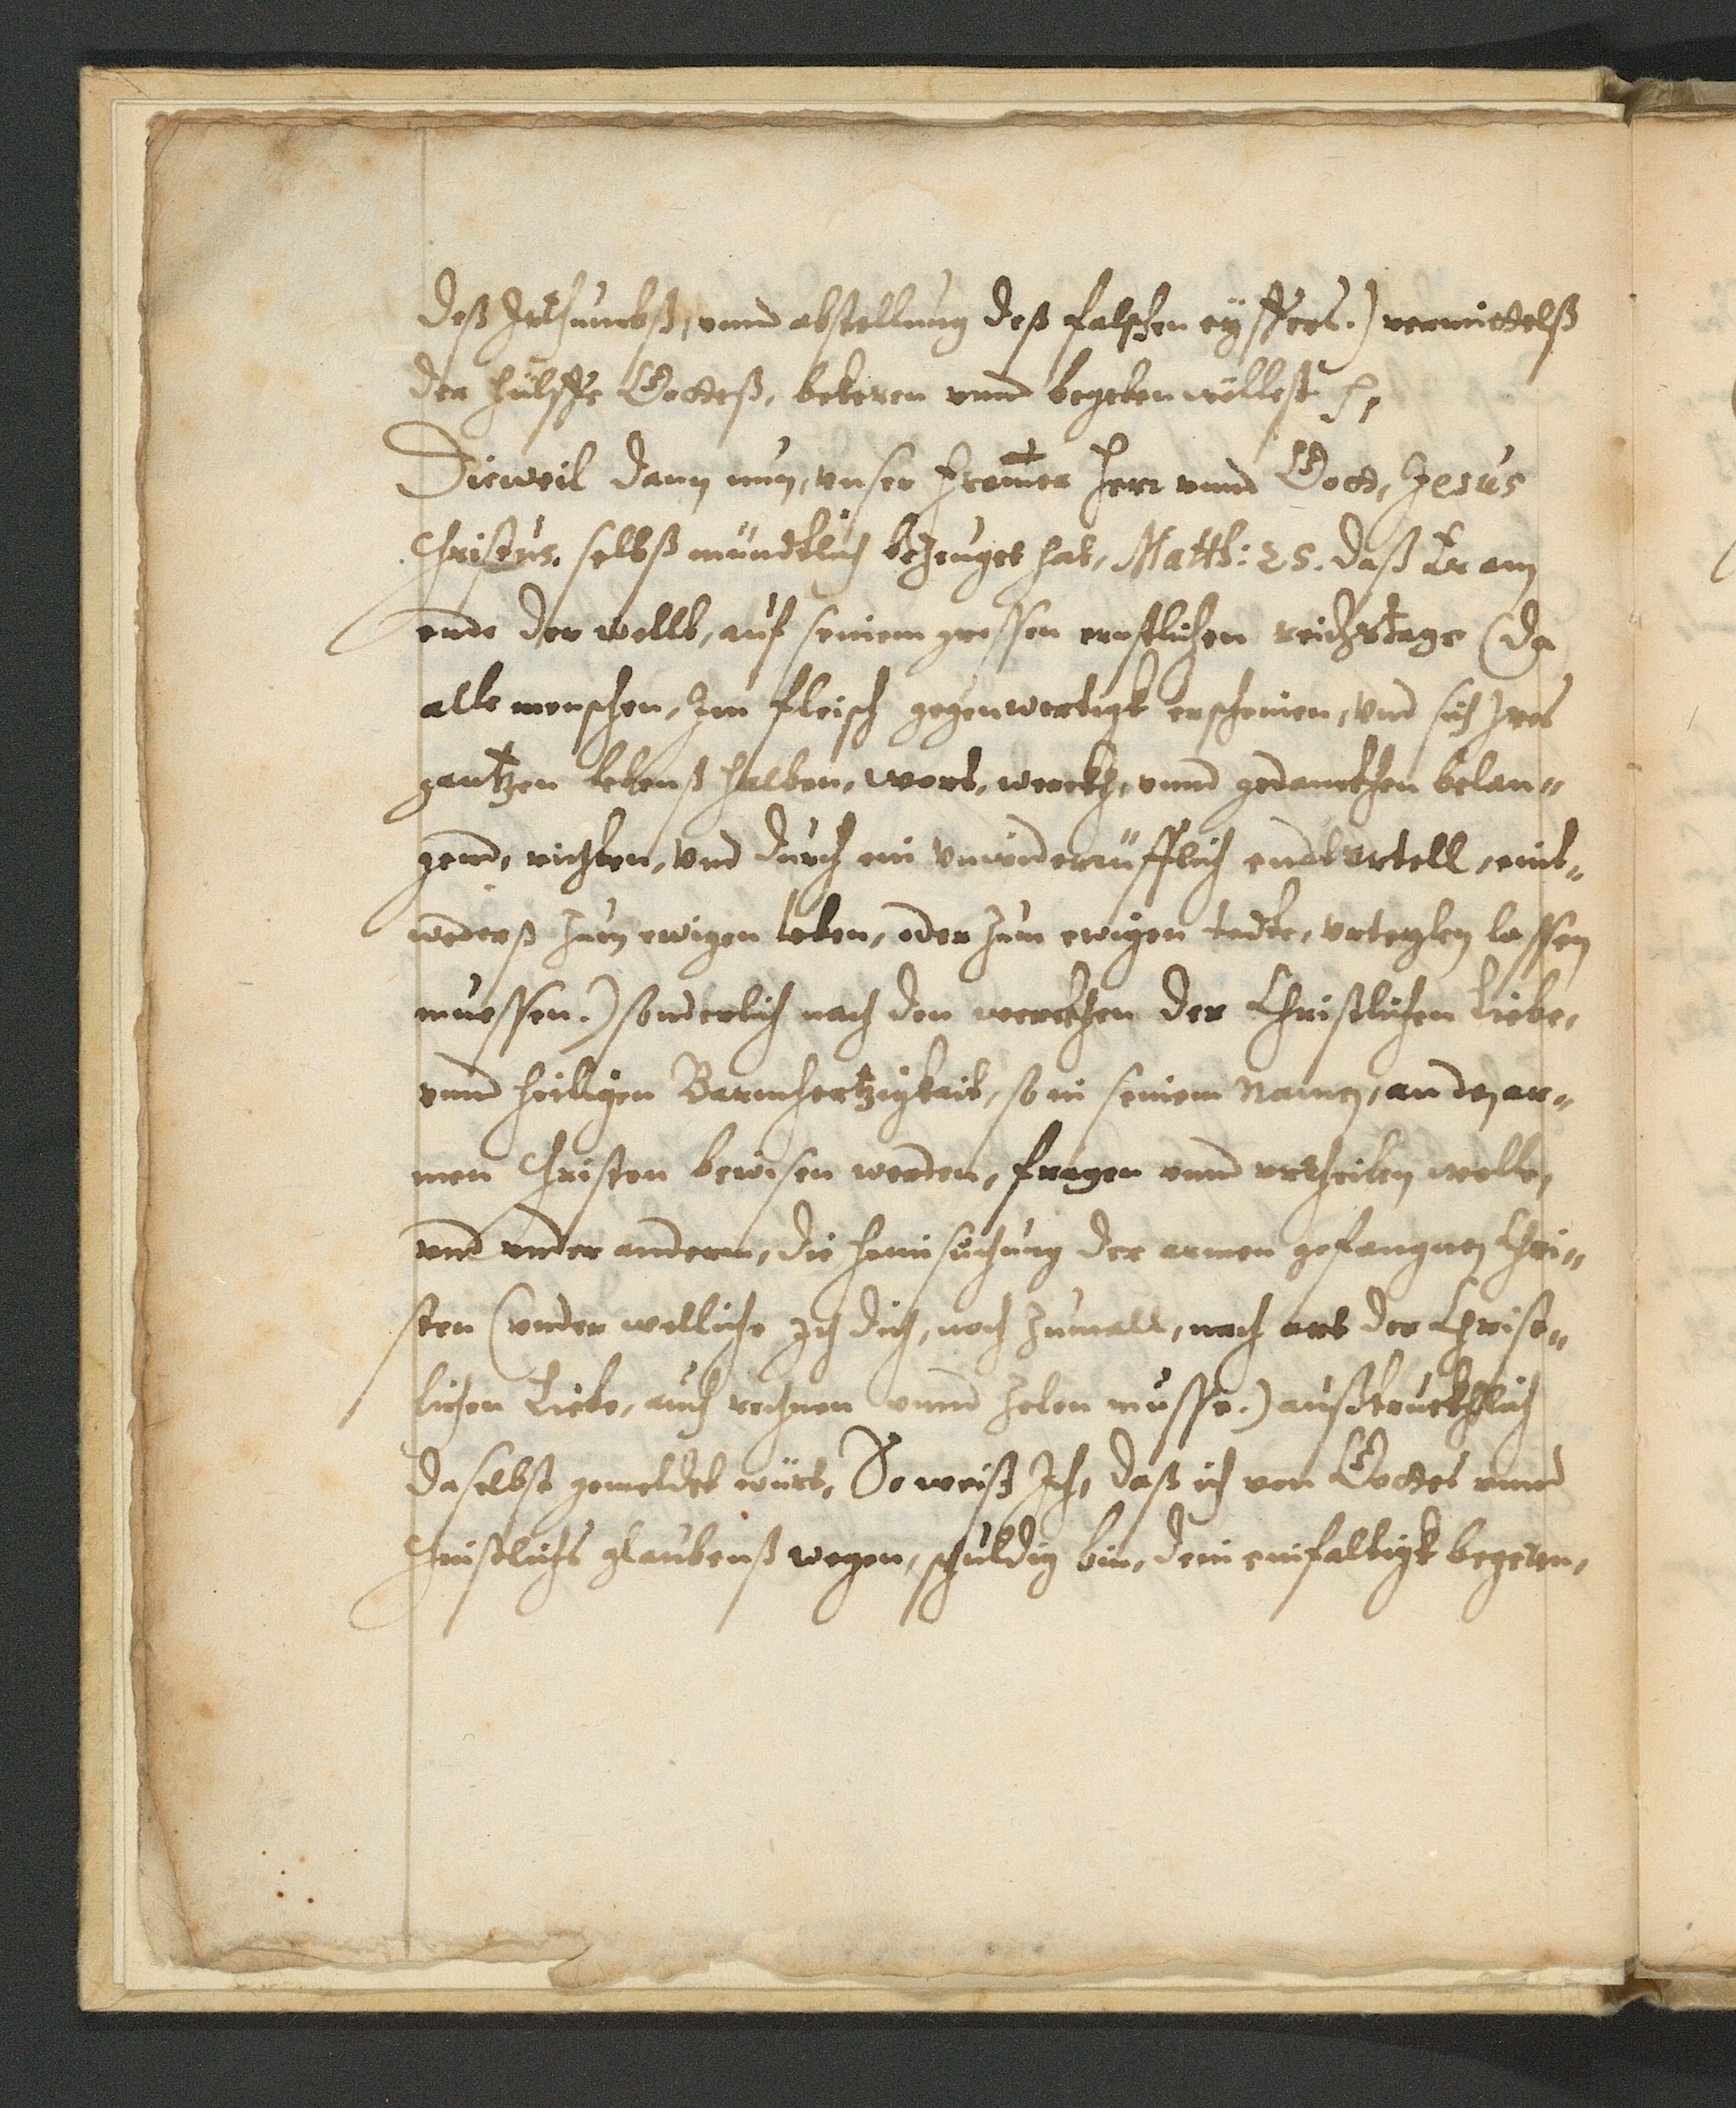 deß Irthumbß, vnnd abstellung deß falschen eyffers.) vermittelß
der hülffe Gotteß, bekeren vnnd begeben wöllest
Dieweil dann nun, vnser fromer Herr vnnd Gott, Jesus
Christus, selbß mündtlich bezeuget hat, Matth: 25. daß Er am
ende der wellt, auf seinem grossen ernstlichen reichstage (da
alle menschen, Im fleisch gegenwertigk erscheinen, vnd sich Ires
gantzen lebenß halben, wort, werckh, vnnd gedanckhen belan„
gend, richten, vnd durch ein vnwiderrüfflich endturtell, eint„
wederß zum ewigen leben, oder zum ewigen todte, vrteylen lassen
muessen.) sonderlich nach den werckhen der Christlichen Liebe,
vnnd heiligen Barmhertzigkait, so in seinem Namen, an den ar„
men Christen bewisen werden, fragen vnnd vrtheilen wolle,
vnd vnder anderm, die heimsuchung der armen gefangnen Chri„
sten (vnder welliche ich dich, noch zumall, nach art der Christ„
lichen Liebe, auch rechnen vnnd zelen musse.) außtruckhlich
daselbst gemeldet würt, So weiß Ich, daß ich von Gottes vnnd
Christlichs glaubenß wegen, schuldig bin, dein einfalltigk begeren,